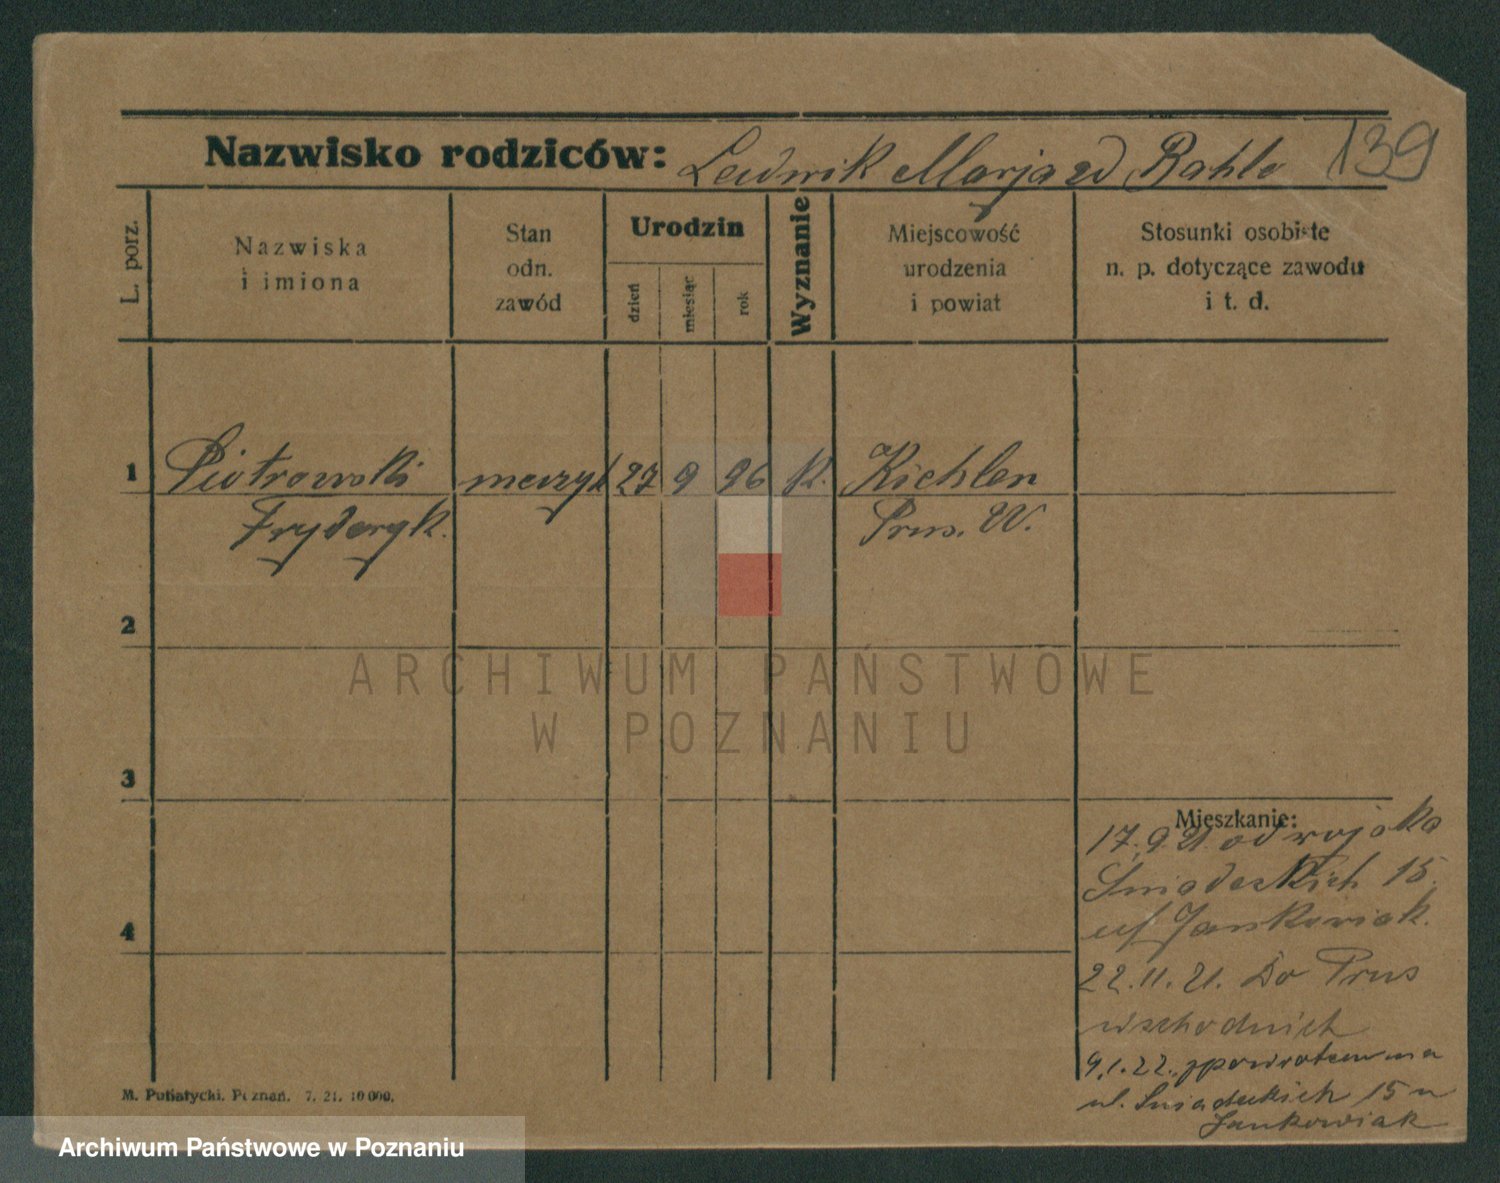 139
Nazwisko rodziców: Ludwik Marja zd Rahlo
L. porz.
Nazwiska
i imiona
Stan
odn.
zawód
Urodzin
dzień
miesiąc
rok
Wyznanie
Miejscowość
urodzenia
i powiat
Stosunki osobiste
n. p. dotyczące zawodu
i t. d.
1 Piotrowski muzyk 27 9 96 K. Kichlen
Fryderyk. Prus. W.
2
3
4
Mieszkanie:
17.9.21 od wojska
Sniadeckich 15.
u/ Jankowiak.
22.11.21. Do Prus
wschodnich
9.1.22. zpowrotem na
ul. Sniadeckich 15 u
Jankowiak
M. Putiatycki. Poznań. 7. 21. 10 000.
ARCHIWUM PAŃSTWOWE
W POZNANIU
Archiwum Państwowe w Poznaniu